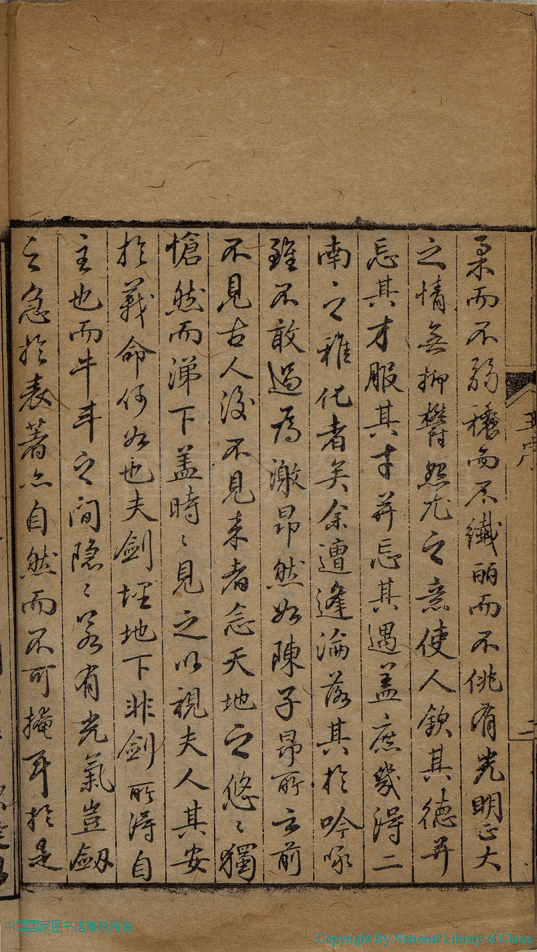 柔而不弱穠而不纖麗而不佻有光明正大
之情無抑鬱怨尤之意使人欽其德并
忘其才服其才并忘其遇蓋庶幾得二
南之雅化者矣余遭逢淪落其於吟啄
雖不敢過為激昂然如陳子昂所云前
不見古人後不見来者念天地之悠〻獨
愴然而涕下蓋時〻見之以視夫人其安
於義命何如也夫劍埋地下非劍所得自
主也而牛斗之間隐〻若有光氣豈劔
之急於表著亦自然而不可掩耳於是
序
二
中国国家图书馆版权所有
Copyright By National Library of China